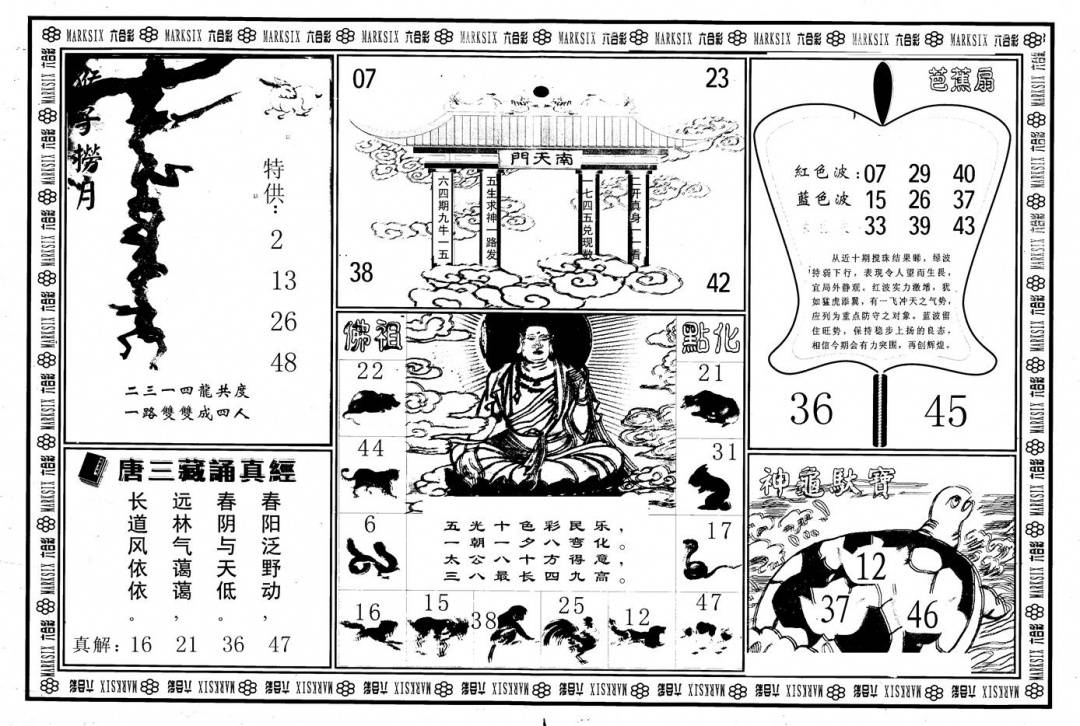 MARKSIX 六合彩 MARKSIX 六合彩 MARKSIX 六合彩 MARKSIX 六合彩 MARKSIX 六合彩 MARKSIX 六合彩 MARKSIX 六合彩 MARKSIX 六合彩 MARKSIX 六合彩 MARKSIX 六合彩
猴子撈月
特供：
2
13
26
48
二三一四龍共度
一路雙雙成四人
07
23
南天門
六四期九牛一五
五生求神 路发
一七四五兑现数
二开真身一一看
38
42
芭蕉扇
紅色波：07 29 40
蓝色波 15 26 37
33 39 43
从近十期搅珠结果睇，绿波
特弱下行，表现令人望而生畏，
宜局外静观。红波实力激增，犹
如猛虎添翼，有一飞冲天之气势，
应列为重点防守之对象。蓝波留
住旺势，保持稳步上扬的良态，
相信今期会有力突围，再创辉煌。
36
45
佛祖
點化
22
44
6
21
31
17
五光十色彩民乐，
一朝一夕八弯化。
太公八十方得意，
三八最长四九高。
16
15
38
25
12
47
唐三藏誦真經
春阳泛野动，
春阴与天低。
远林气蔼蔼，
长道风依依。
真解：16 21 36 47
神龜馱寶
12
37
46
MARKSIX 六合彩 MARKSIX 六合彩 MARKSIX 六合彩 MARKSIX 六合彩 MARKSIX 六合彩 MARKSIX 六合彩 MARKSIX 六合彩 MARKSIX 六合彩 MARKSIX 六合彩 MARKSIX 六合彩